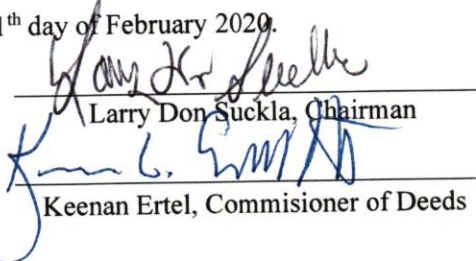 1th day of February 2020.
Larry Don Suckla, Chairman
Keenan Ertel, Commisioner of Deeds